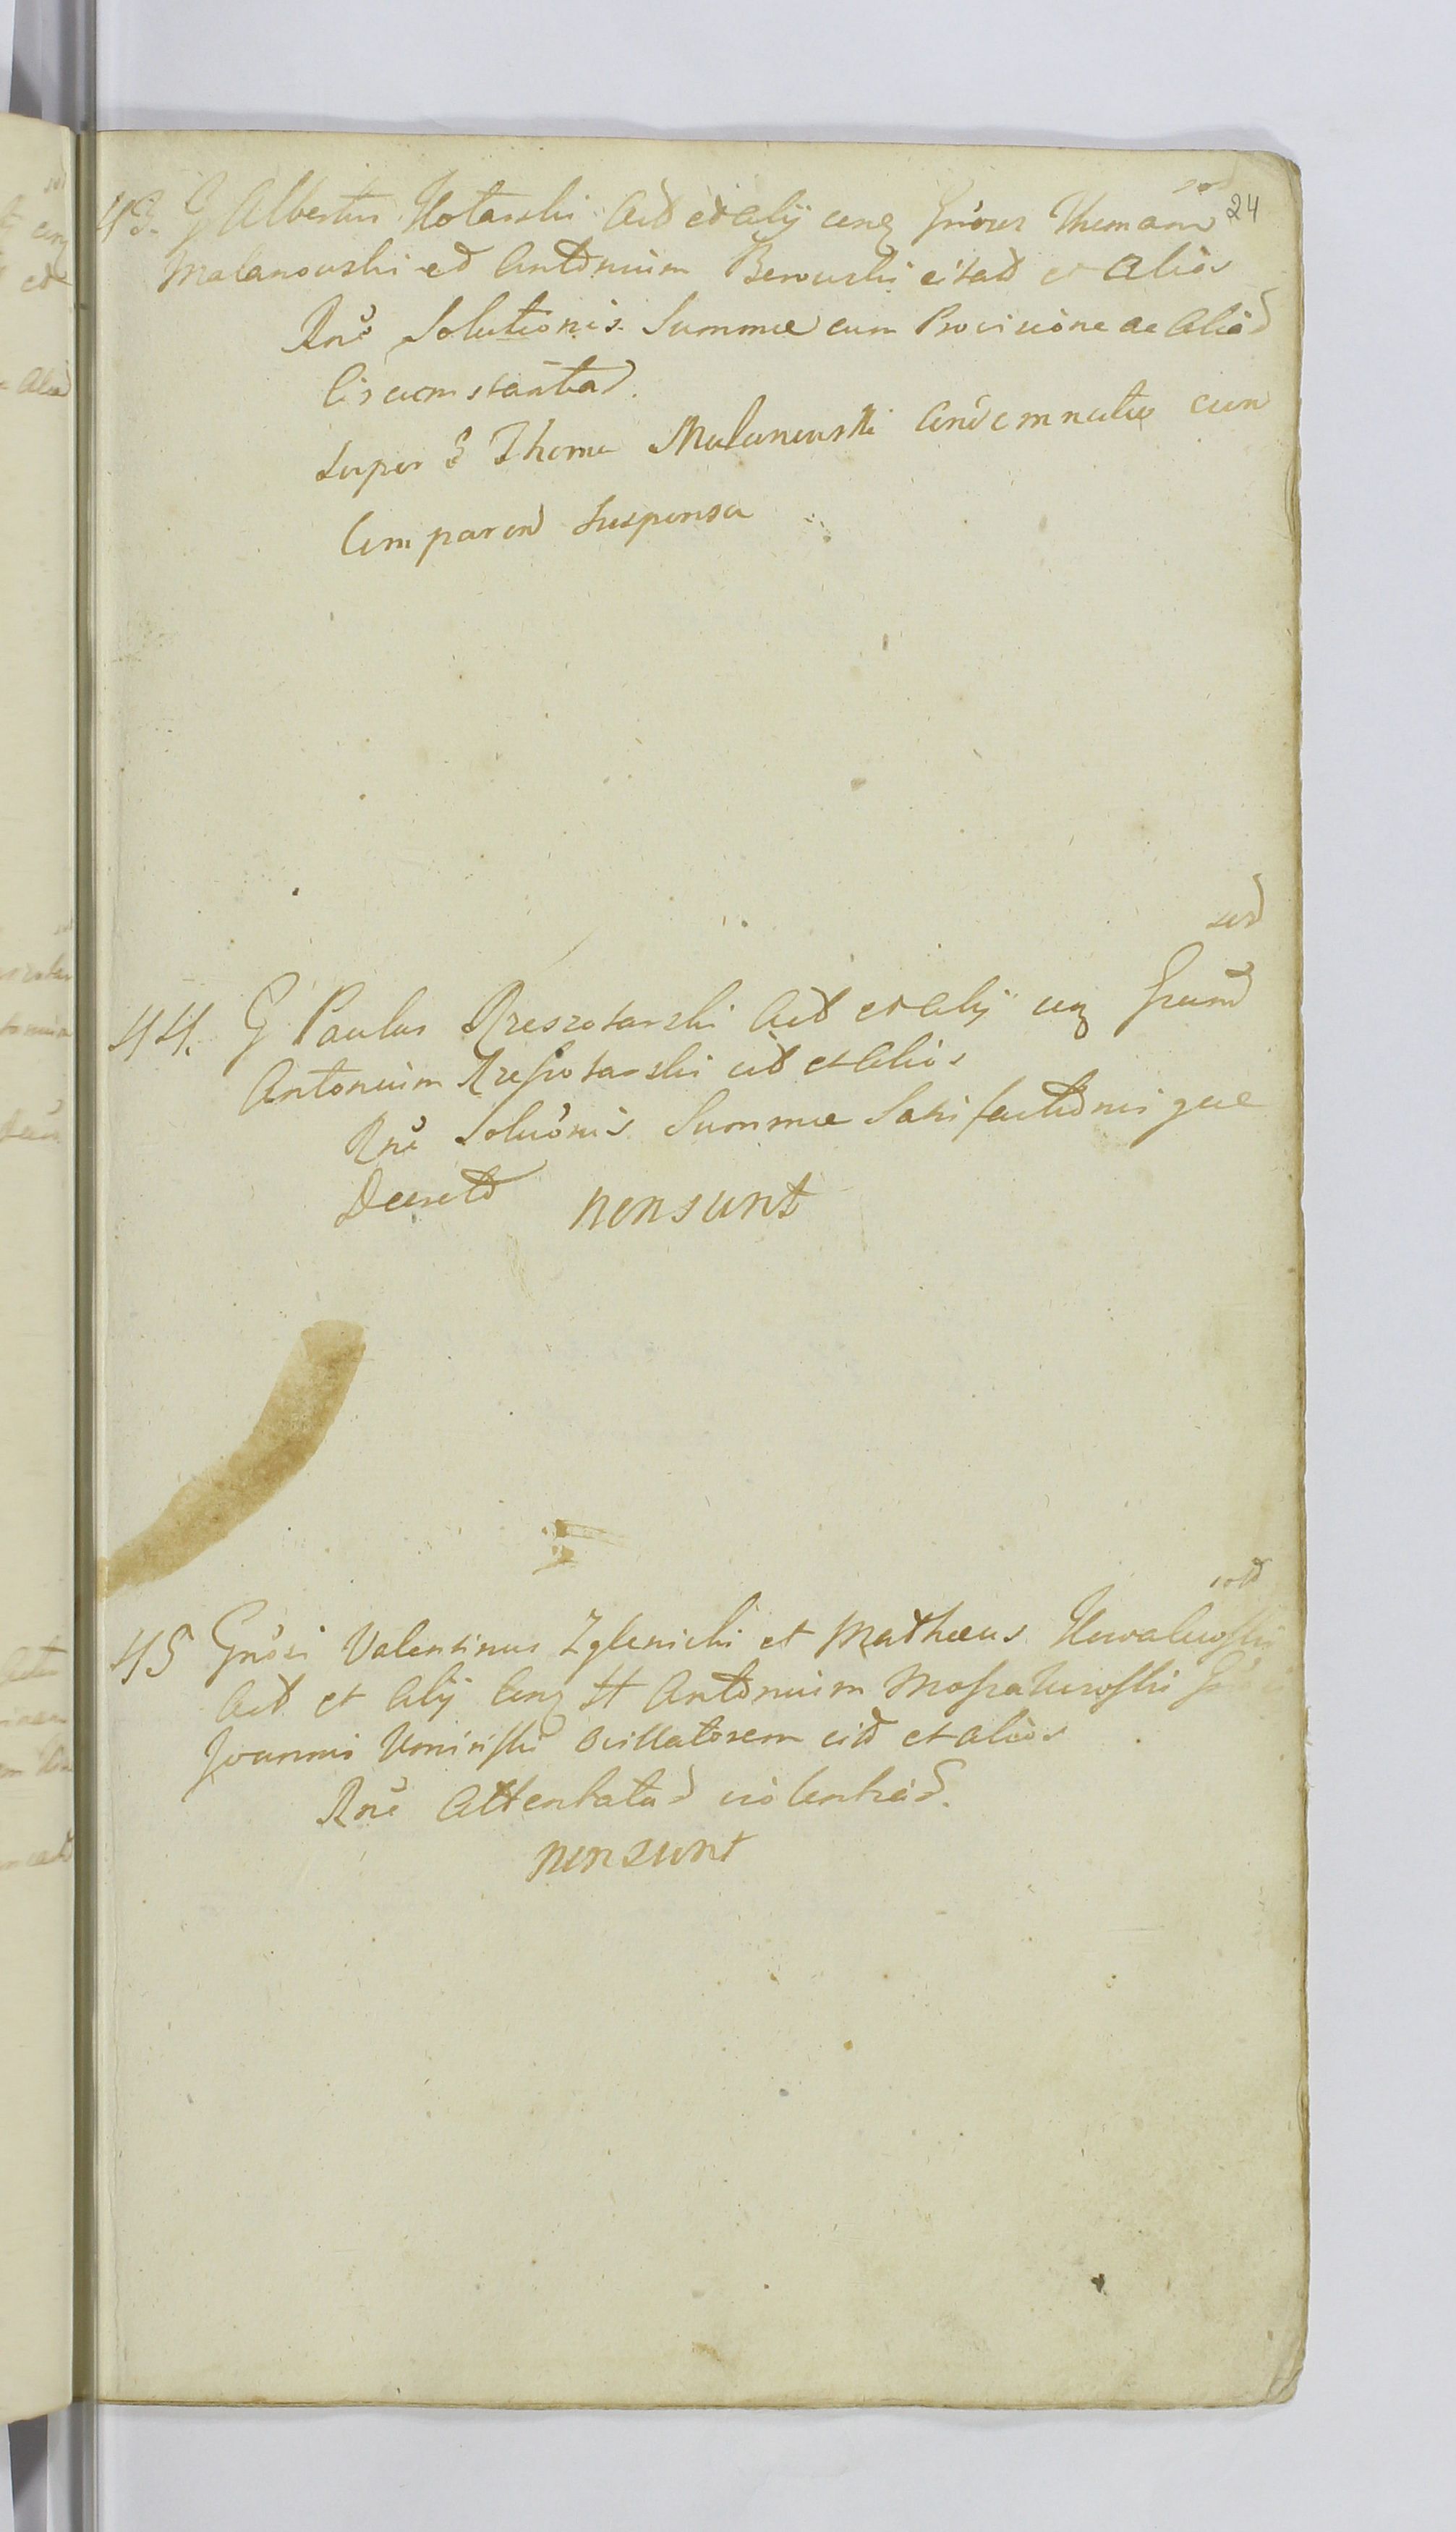 sod
24
43. G Albertus Kotarski Act et alij cong Gn̄osos Thomam
Malanowski et Antonium Berowski citat et alios
Rn̄e Solutionis Summae cum Provisione ac aliad
Circumstantiad.
Super G Thoma Malanowski Condemnatio cum
Comparen Suspensa
sod
44. G Paulus Rzeszotarski Act et alij cong Gn̄sum
Antonium Rzeszotarski cit et alios
Rn̄e Soluonis Summae Satisfactionisque
Decreto non sunt
sod
45 Gn̄osi Valentinus Zglenicki et Mathaeus Kowalewski
Act et alij Cong H Antonium
Joannis oscillatorem cit et alios
Rn̄e Attentatad violentiad.
non sunt